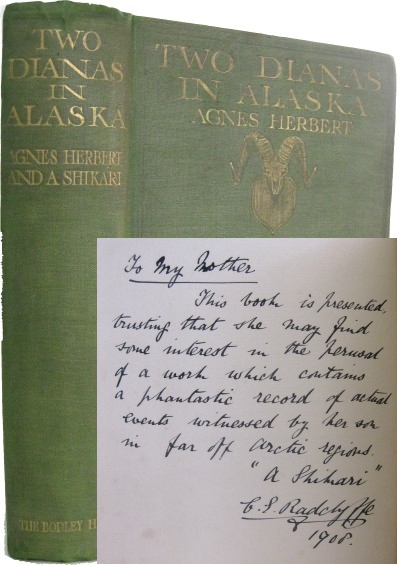 TWO
DIANAS
IN
ALASKA
AGNES HERBERT
AND A SHIKARI
THE BODLEY H
TWO DIANAS
IN ALASKA
AGNES HERBERT
To My Mother
This book is presented,
trusting that she may find
some interest in the perusal
of a work which contains
a phantastic record of actual
events witnessed by her son
in far off Arctic regions.
"A Shikari"
C. E. Radclyffe
1908.